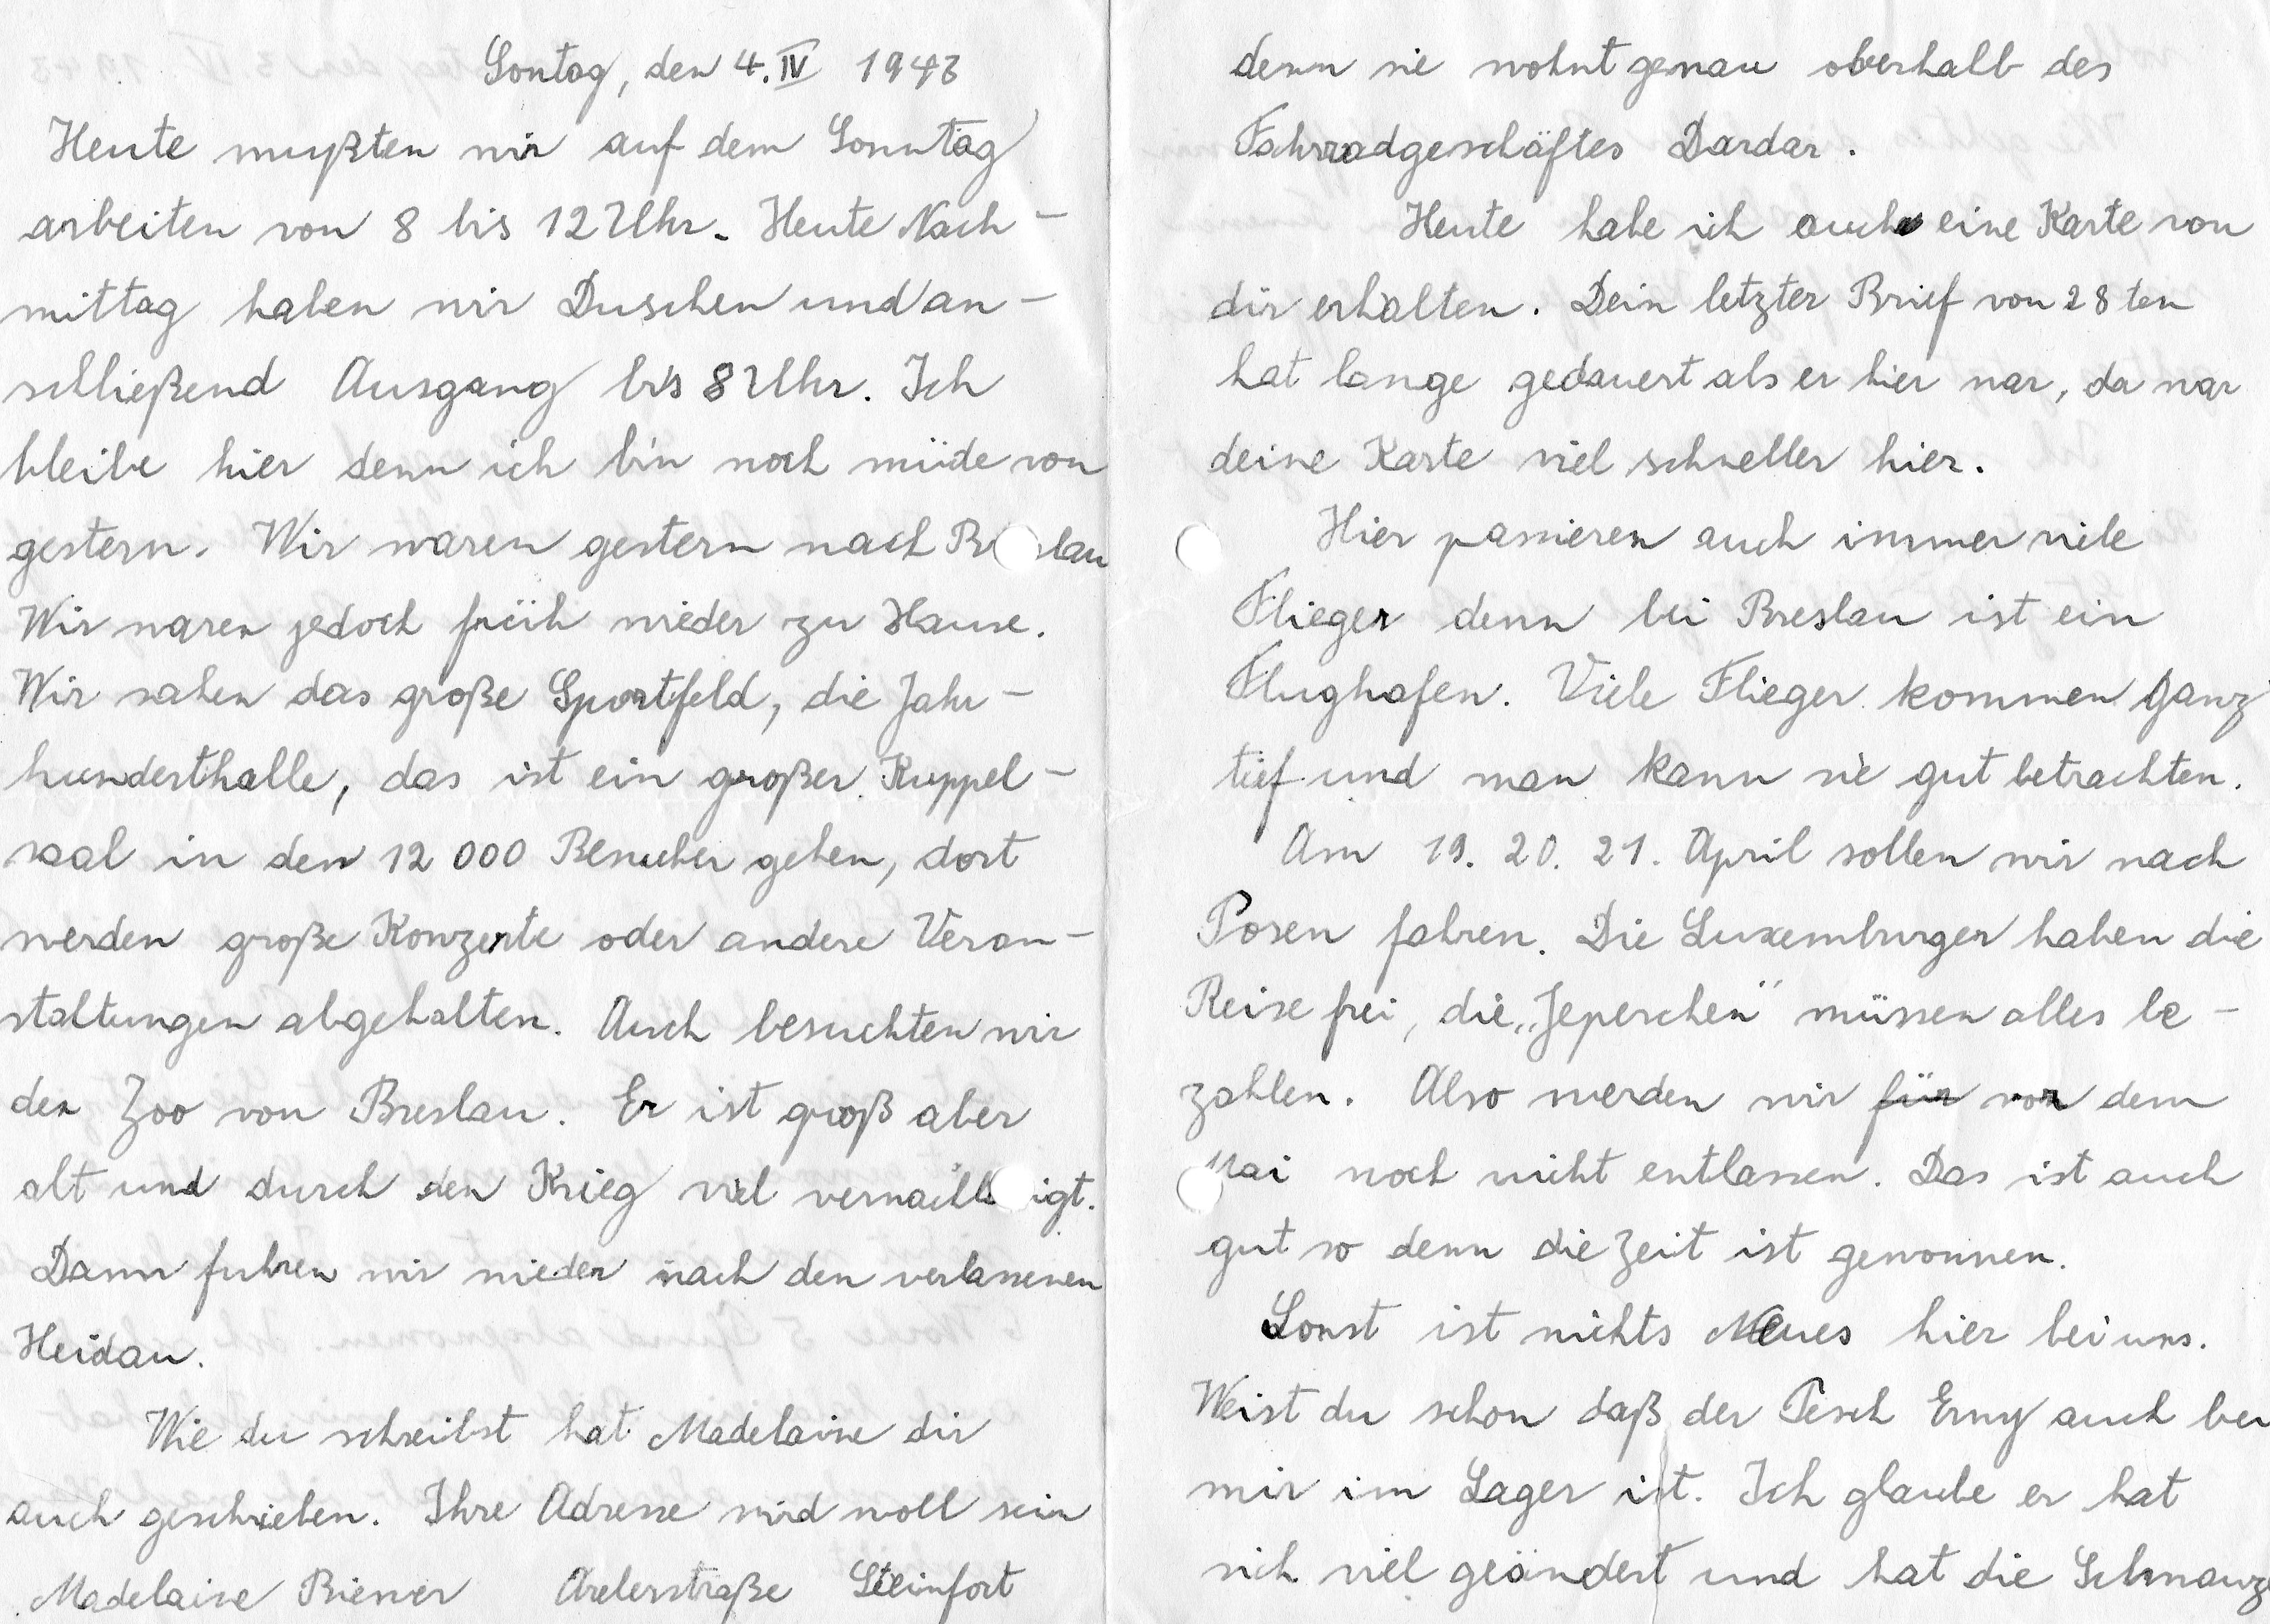 Sontag, den 4. IV 1943
Heute mußten wir auf dem Sonntag
arbeiten von 8 bis 12 Uhr. Heute Nach-
mittag haben wir Duschen und an-
schließend Ausgang bis 8 Uhr. Ich
bleibe hier denn ich bin noch müde von
gestern. Wir waren gestern nach Breslau
Wir waren jedoch früh wieder zu Hause.
Wir sahen das große Sportfeld, die Jahr-
hunderthalle, das ist ein großer Kuppel-
saal in den 12 000 Besucher gehen, dort
werden große Konzerte oder andere Veran-
staltungen abgehalten. Auch besuchten wir
den Zoo von Breslau. Er ist groß aber
alt und durch den Krieg viel
Dann fuhren wir wieder nach den verlassenen
Heidau.
Wie du schreibst hat Madelaine dir
auch geschrieben. Ihre Adresse wird woll sein
Madelaine Arelerstraße Steinfort
denn sie wohnt genau oberhalb des
Fahrradgeschäftes Dardar.
Heute habe ich auch eine Karte von
dir erhalten. Dein letzter Brief von 28 ten
hat lange gedauert als er hier war, da war
deine Karte viel schneller hier.
Hier passieren auch immer viele
Flieger denn bei Breslau ist ein
Flughafen. Viele Flieger kommen ganz
tief und man kann sie gut betrachten.
Am 19. 20. 21. April sollen wir nach
Posen fahren. Die Luxemburger haben die
Reise frei, die „Jeperchen" müssen alles be-
zahlen. Also werden wir für vor dem
Mai noch nicht entlassen. Das ist auch
gut so denn die Zeit ist gewonnen.
Sonst ist nichts Neues hier bei uns.
Weist du schon daß der Pesch Erny auch bei
mir im Lager ist. Ich glaube er hat
sich viel geändert und hat die